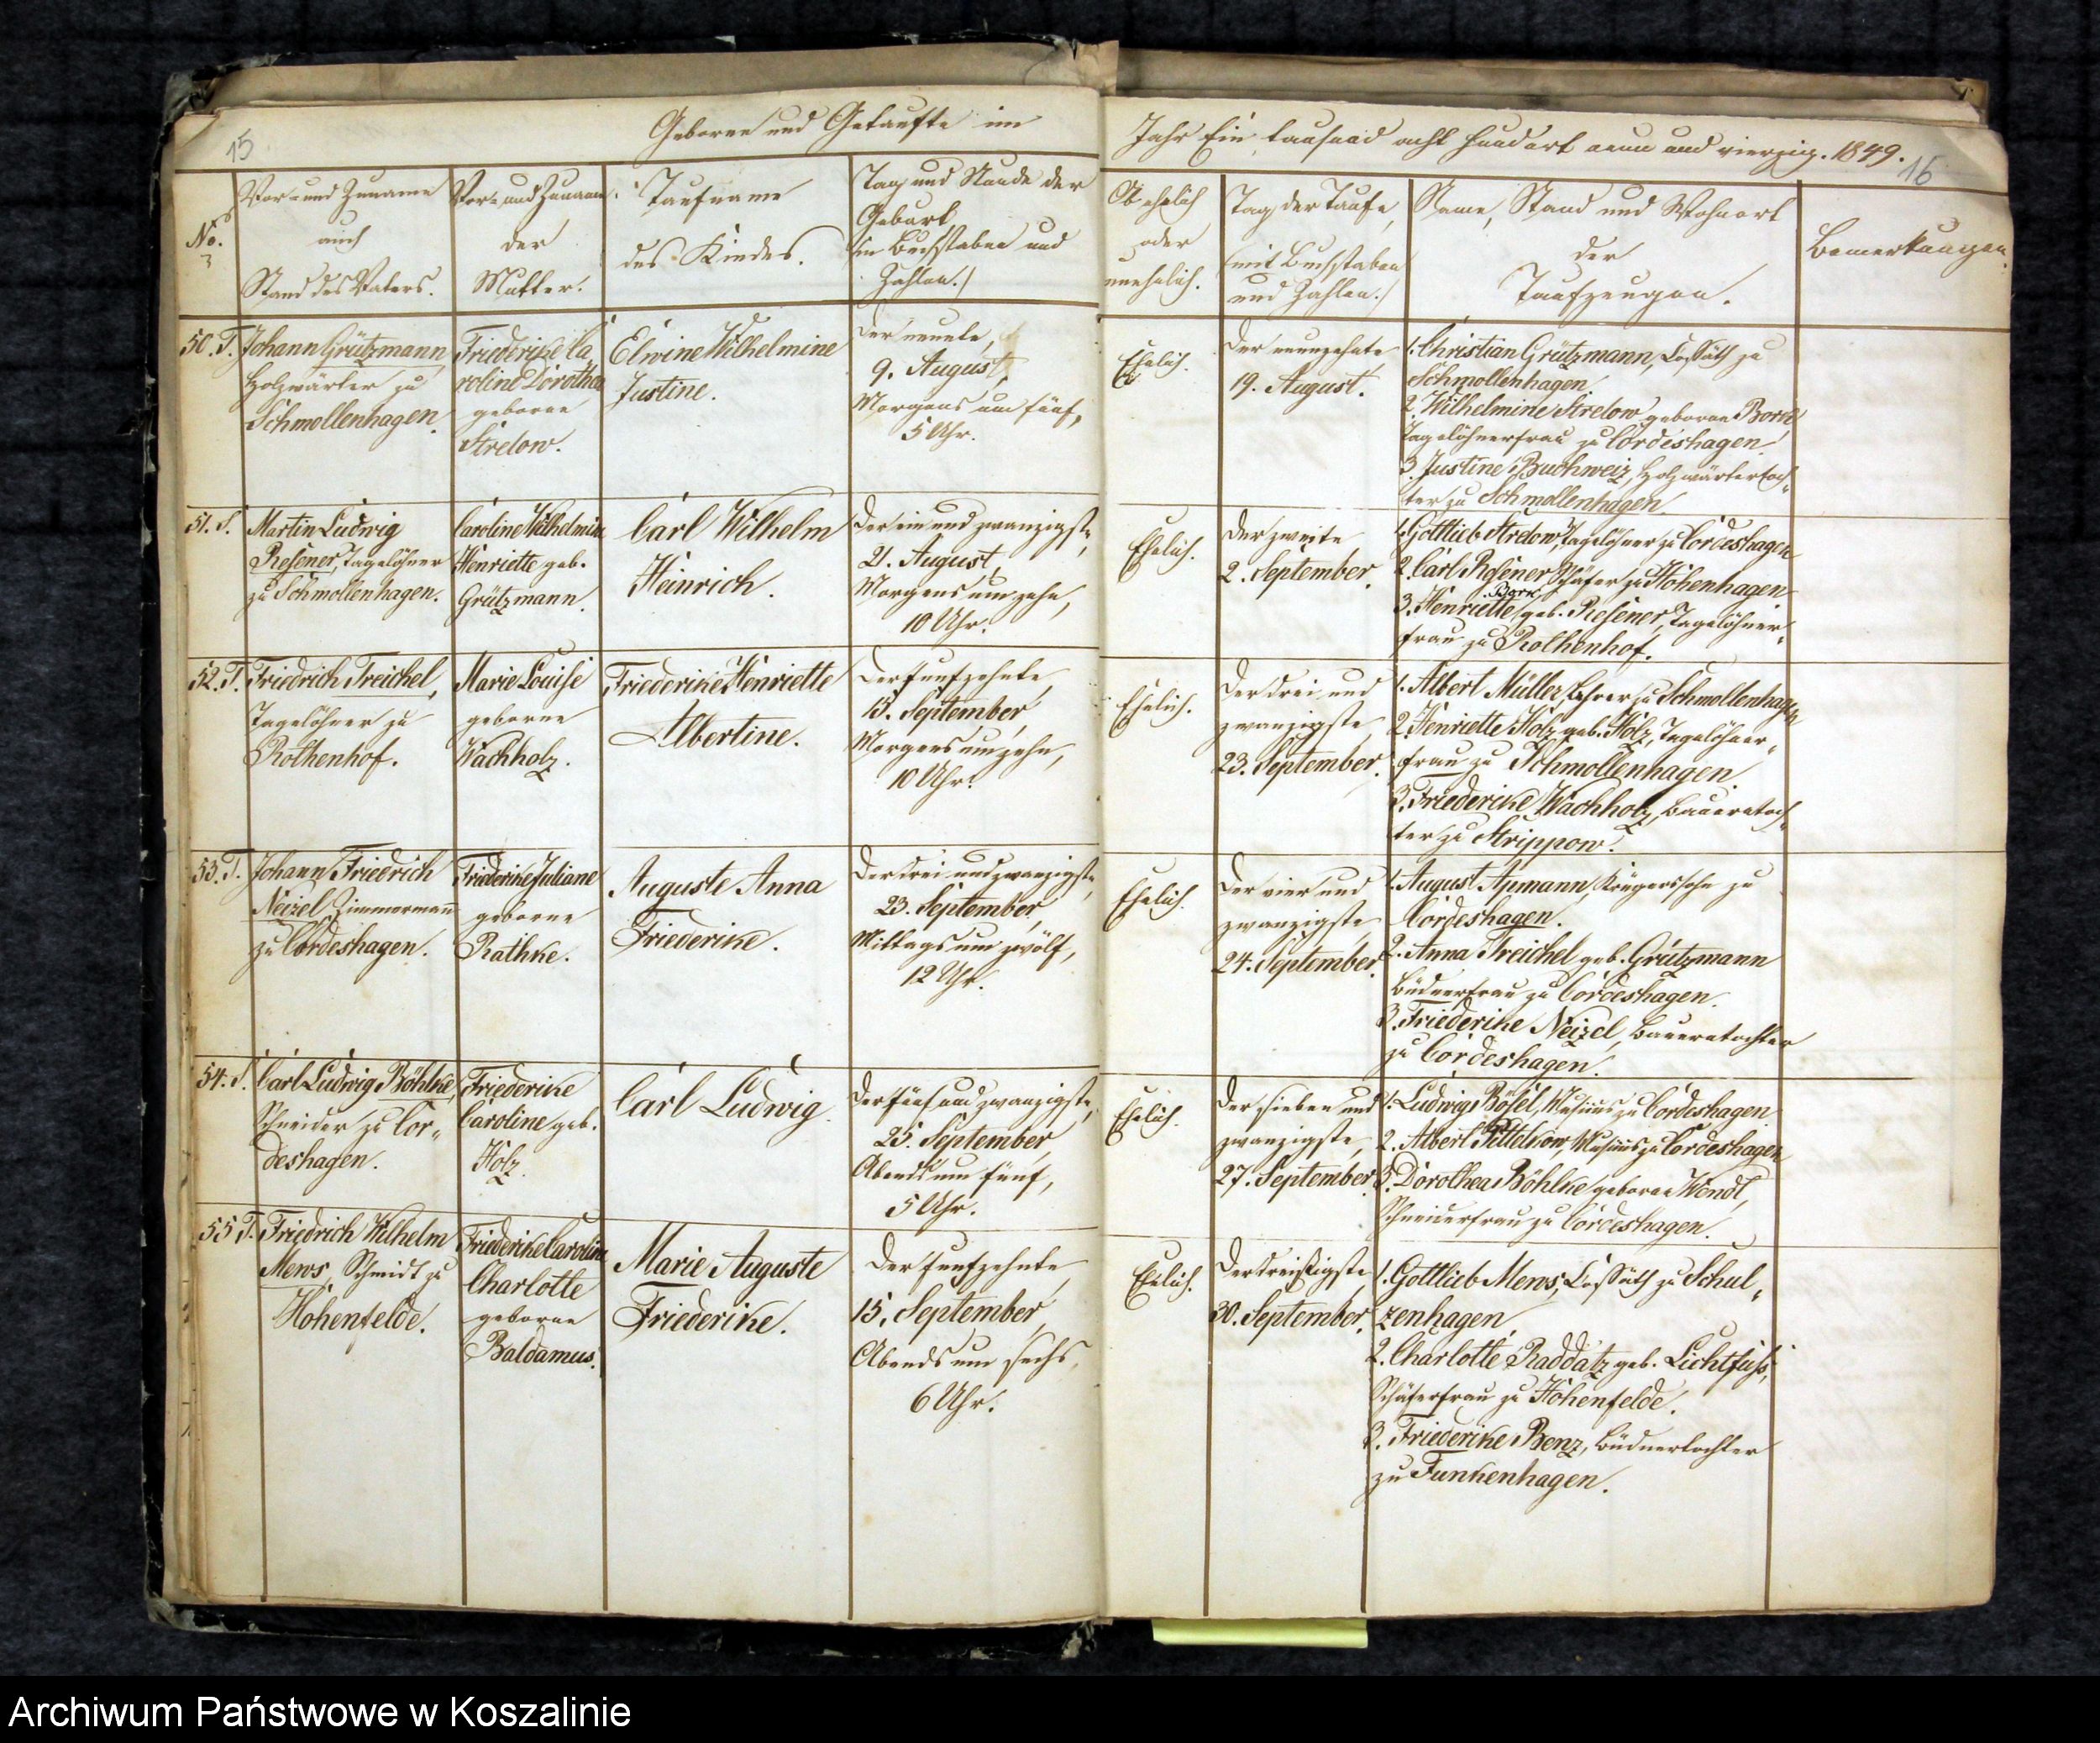 15
Geborne und Getaufte im
No.
Vor- und Zuname
auch
Stand des Vaters.
Vor- und Zuname
der
Mutter.
Taufname
des Kindes.
Tag und Stunde der
Geburt
(in Buchstaben und
Zahlen.)
50. T.
Johann Grützmann,
Holzwärter zu
Schmollenhagen.
Friederike Ca
roline Dorothea
geborne
Strelow.
Elwine Wilhelmine
Justine.
Der neunte,
9. August,
Morgens um fünf,
5 Uhr.
51. S.
Martin Ludwig
Resener, Tagelöhner
zu Schmollenhagen.
Caroline Wilhelmine
Henriette geb.
Grützmann.
Carl Wilhelm
Heinrich.
Der ein und zwanzigste,
21. August,
Morgens um zehn,
10 Uhr.
52. T.
Friedrich Treichel,
Tagelöhner zu
Rothenhof.
Marie Louise
geborne
Wachholz.
Friederike Henriette
Albertine.
Der funfzehnte,
15. September,
Morgens um zehn,
10 Uhr.
53. T.
Johann Friedrich
Neizel Zimmermann
zu Cordeshagen.
Friederike Juliane
geborne
Rathke.
Auguste Anna
Friederike.
Der drei und zwanzigste,
23. September,
Mittags um zwölf,
12 Uhr.
54. S.
Carl Ludwig Böhlke,
Schneider zu Cor„
deshagen.
Friederike
Caroline geb.
Holz.
Carl Ludwig.
Der fünf und zwanzigste,
25. September,
Abends um fünf,
5 Uhr.
55 T.
Friedrich Wilhelm
Mews, Schmidt zu
Hohenfelde.
Friederike Caroline
Charlotte
geborne
Baldamus.
Marie Auguste
Friederike.
Der funfzehnte,
15. September,
Abends um sechs,
6 Uhr.
Jahr Ein tausend acht hundert neun und vierzig. 1849.
16
Ob ehelich
oder
unehelich.
Tag der Taufe,
(mit Buchstaben
und Zahlen.)
Name, Stand und Wohnort
der
Taufzeugen.
Bemerkungen.
Ehelich.
Der neunzehnte,
19. August.
1. Christian Grützmann, Cossäth zu
Schmollenhagen
2. Wilhelmine Strelow geborne
Tagelöhnerfrau zu Cordeshagen.
3. Justine Buchweiz, Holzwärtertoch„
ter zu Schmollenhagen
Ehelich.
Der zweite
2. September.
1. Gottlieb Strelow, Tagelöhner zu Cordeshagen
2. Carl Resener Schäfer zu Hohenhagen
Bork
3. Henriette geb. Resener, Tagelöhner„
frau zu Rothenhof.
Ehelich.
Der drei und
zwanzigste,
23. September.
1. Albert Müller, Lehrer zu Schmollenhagen
2. Henriette Holz geb. Holz, Tagelöhner„
frau zu Schmollenhagen
3. Friederike Wachholz, Bauerntoch„
ter zu Strippow.
Ehelich.
Der vier und
zwanzigste
24. September.
1. August Apmann, Krügerssohn zu
Cordeshagen.
2. Anna Treichel geb. Grützmann
Büdnerfrau zu Cordeshagen.
3. Friederike Neizel, Bauerntochter
zu Cordeshagen.
Ehelich.
Der sieben und
zwanzigste,
27. September.
1. Ludwig Bösel, Musicus zu Cordeshagen.
2. Albert Pittelkow, Musicus zu Cordeshagen
3. Dorothea Böhlke geborne Wendt,
Schneiderfrau zu Cordeshagen.
Ehelich.
Der dreißigste,
30. September.
1. Gottlieb Mews, Cossäth zu Schul„
zenhagen,
2. Charlotte Raddatz geb. Lichtfuß,
Schäferfrau zu Hohenfelde.
3. Friederike Benz, Büdnertochter
zu Funkenhagen.
Archiwum Państwowe w Koszalinie